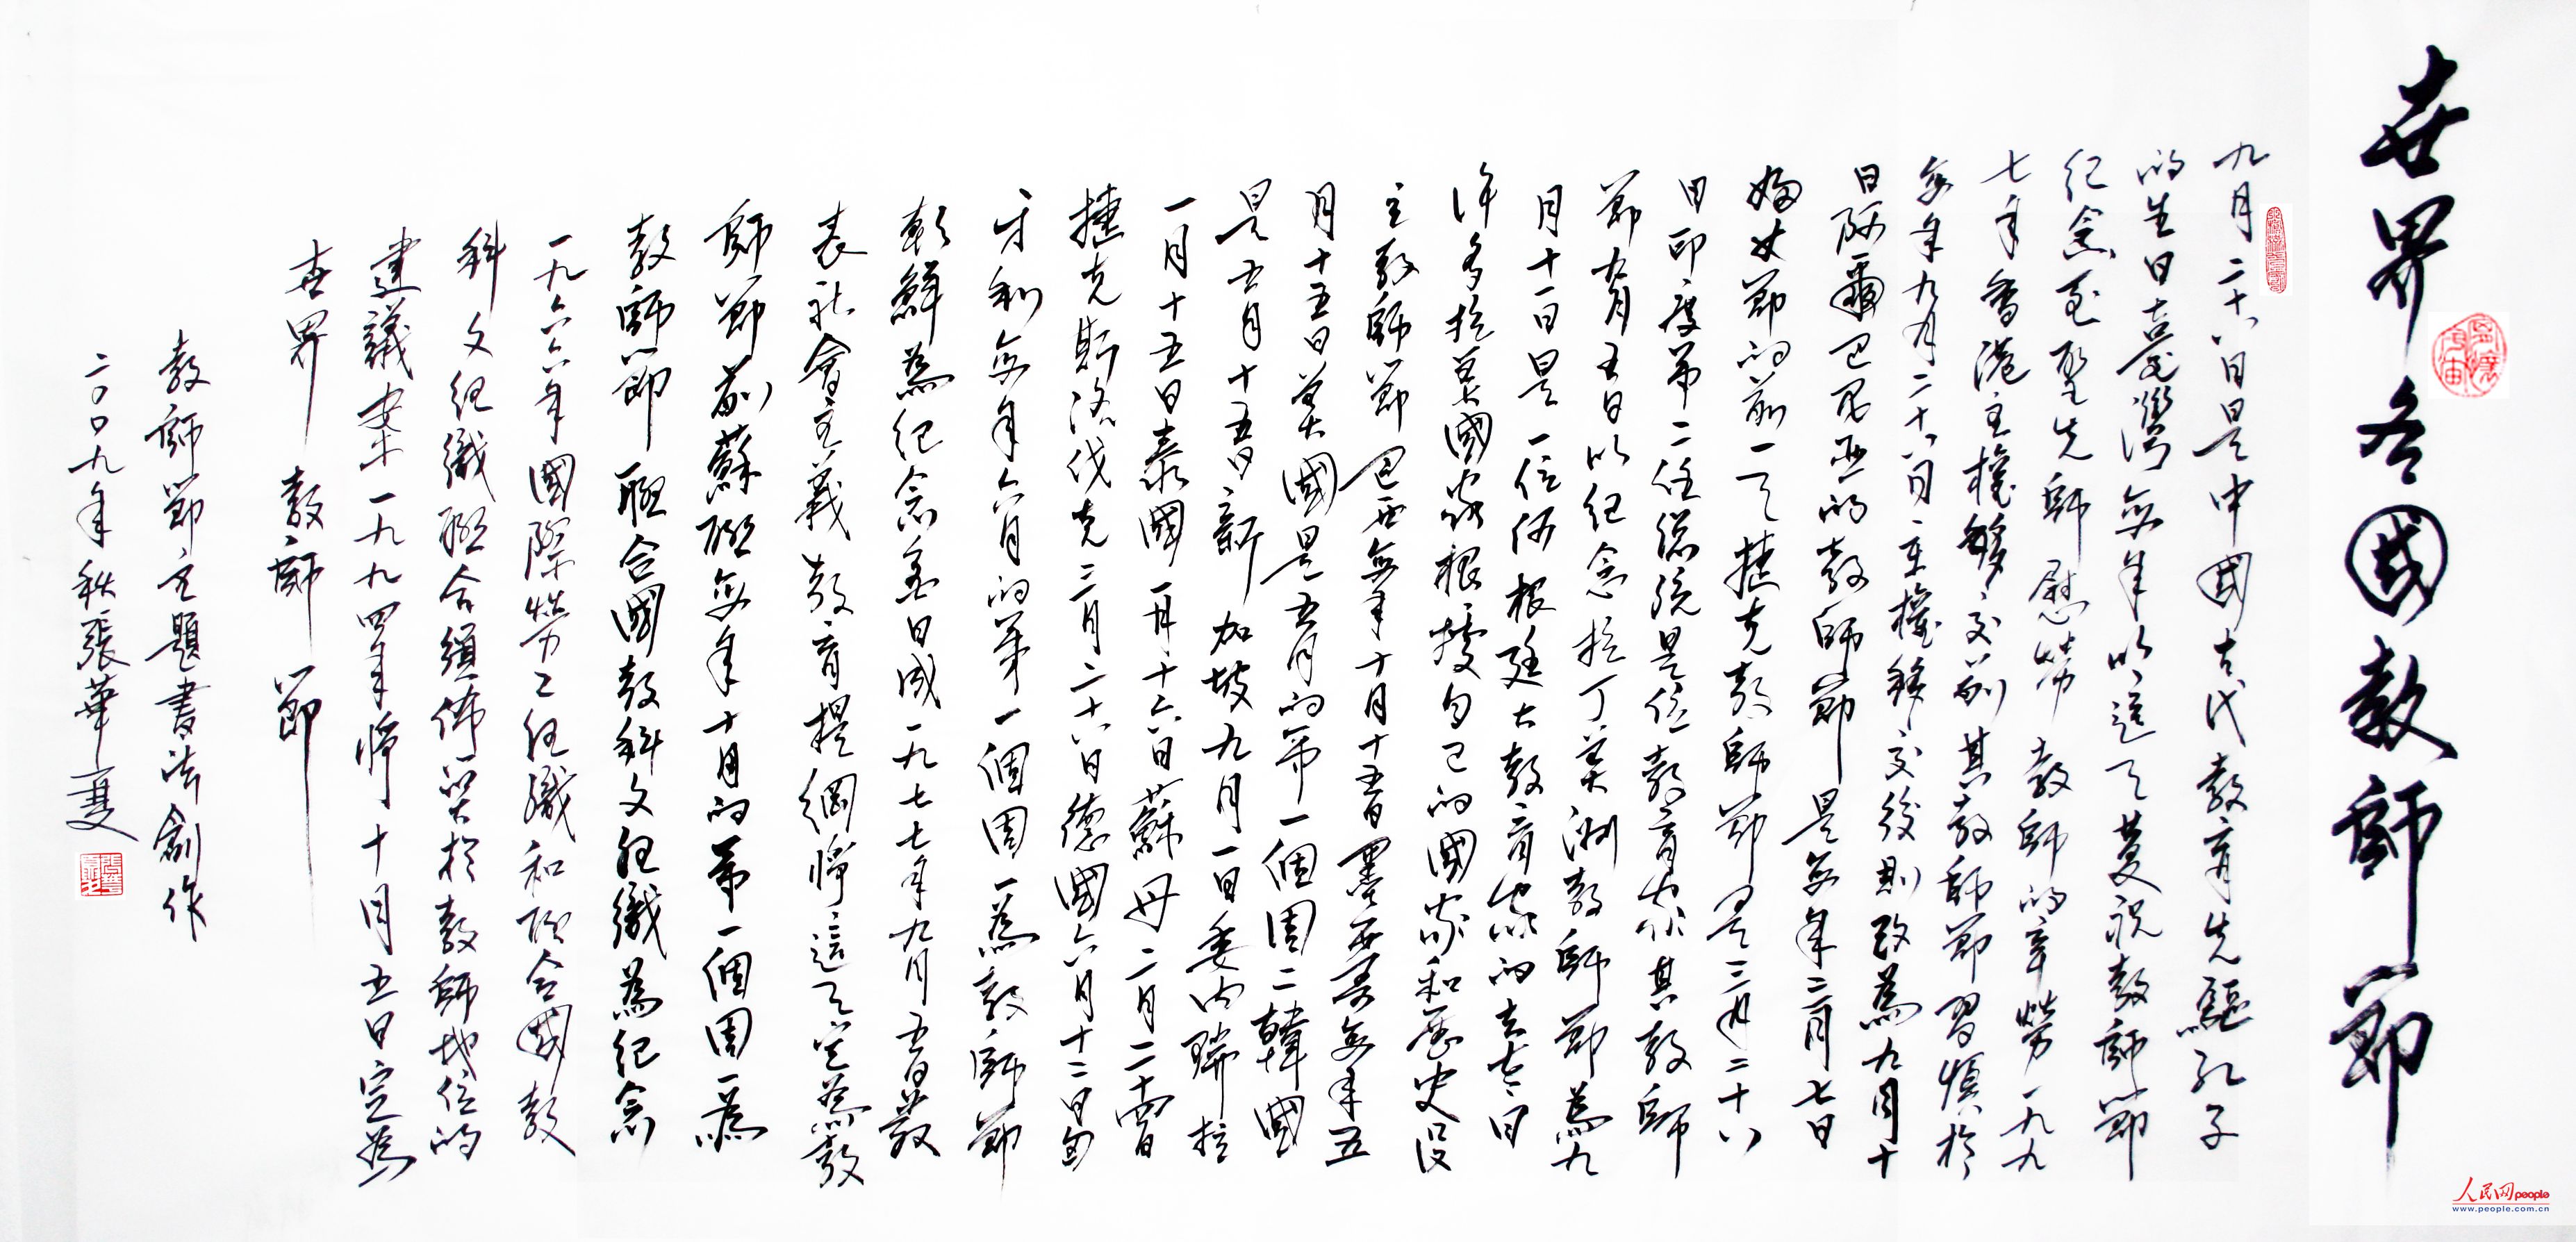 世界各國教師節
九月二十八日是中國古代教育先驅孔子
的生日臺灣每年以這天慶祝教師節
紀念至聖先師慰勞教師的辛勞一九九
七年香港主權移交前其教師節習慣於
每年九月二十八日主權移交後則改為九月十
日阿爾巴尼亞的教師節是每年三月七日
婦女節的前一天捷克教師節是三月二十八
日印度第二任總統是位教育家其教師
節九月五日以紀念拉丁美洲教師節為九
月十一日是一位阿根廷大教育家的去世日
許多拉美國家根據自己的國家和歷史設
立教師節巴西每年十月十五日墨西哥每年五
月十五日美國是五月的第一個周二韓國
是五月十五日新加坡九月一日委內瑞拉
一月十五日泰國一月十六日蘇丹二月二十四日
捷克斯洛伐克三月二十八日德國六月十二日匈
牙利每年六月的第一個周一為教師節
朝鮮為紀念金日成一九七七年九月五日發
表社會主義教育提綱將這天定為教
師節前蘇聯每年十月的第一個周一為
教師節聯合國教科文組織為紀念
一九六六年國際勞工組織和聯合國教
科文組織聯合頒佈關於教師地位的
建議案一九九四年將十月五日定為
世界 教師節
教師節主題書法創作
二〇〇九年秋張華夏
人民网 people
www.people.com.cn